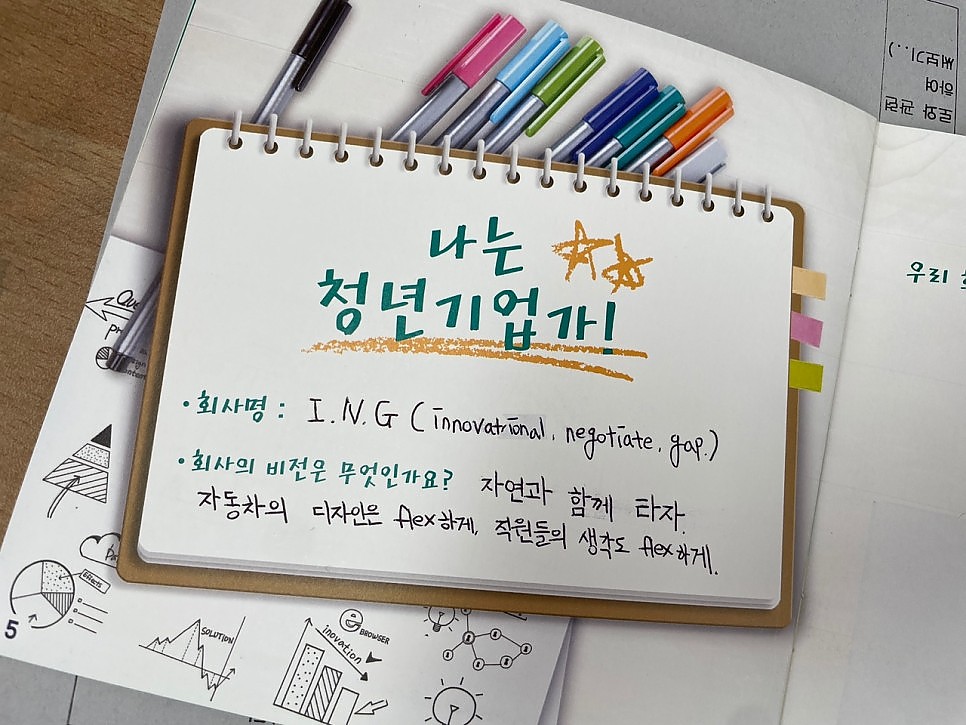 나는
청년기업가!
• 회사명 : I.N.G (innovational, negotiate, gap.)
• 회사의 비전은 무엇인가요? 자연과 함께 타자.
자동차의 디자인은 flex하게, 직원들의 생각도 flex하게.
우리
Effects
SOLUTION
inovation
BROWSER
5